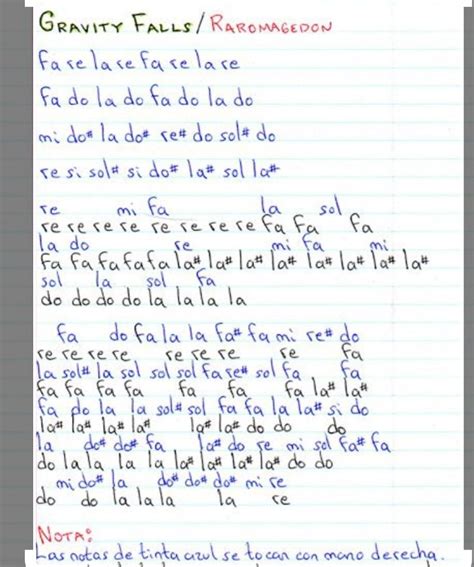 GRAVITY FALLS/RAROMAGEDON
fa re la re fa re la re
fa do la do fa do la do
mi do# la do# re# do sol# do
re si sol# si do# la# sol la#
re mi fa la sol
re re re re re re re re re fa fa fa
la do re mi fa mi
fa fa fa fa fa la# la# la# la# la# la# la# la#
sol la sol fa
do do do do la la la la
fa do fa la la fa# fa mi re# do
re re re re re re re re fa
la sol# la sol sol sol fa re# sol fa fa
fa fa fa fa fa fa fa la# la#
fa do la la sol# sol fa fa la la# si do
la# la# la# la# la# la# do do do
la do# do# fa la# do re mi sol fa# fa
do la la la la la# la# la# la# do do
mi do# la do# do# do# mi re
do do la la la la re
NOTA:
Las notas de tinta azul se tocan con mano derecha.